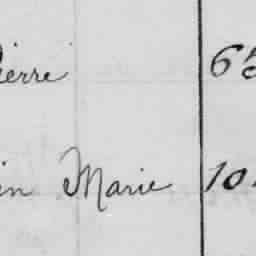 Pierre 65
in Marie 10